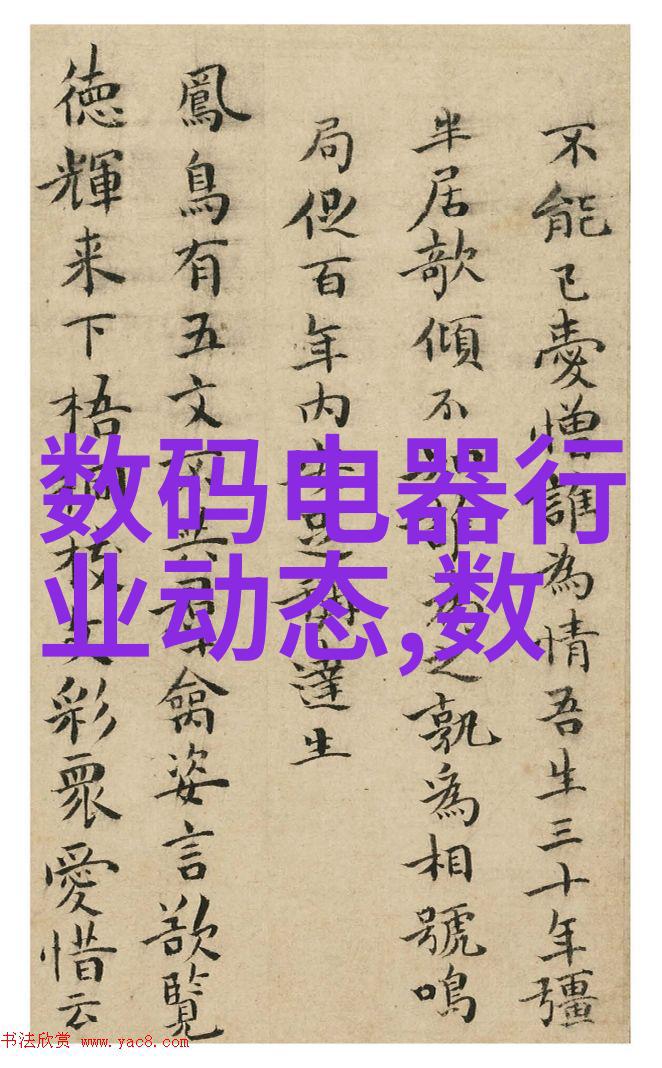 不能已憂憎誰為情吾生三十年彊
半居欹傾不為之孰為相號鳴
局促百年內達生
鳳鳥有五文禽姿言欲覽
德輝来下梧枝文彩眾愛惜云
数码电器行
业动态,数
书法欣赏 www.yac8.com